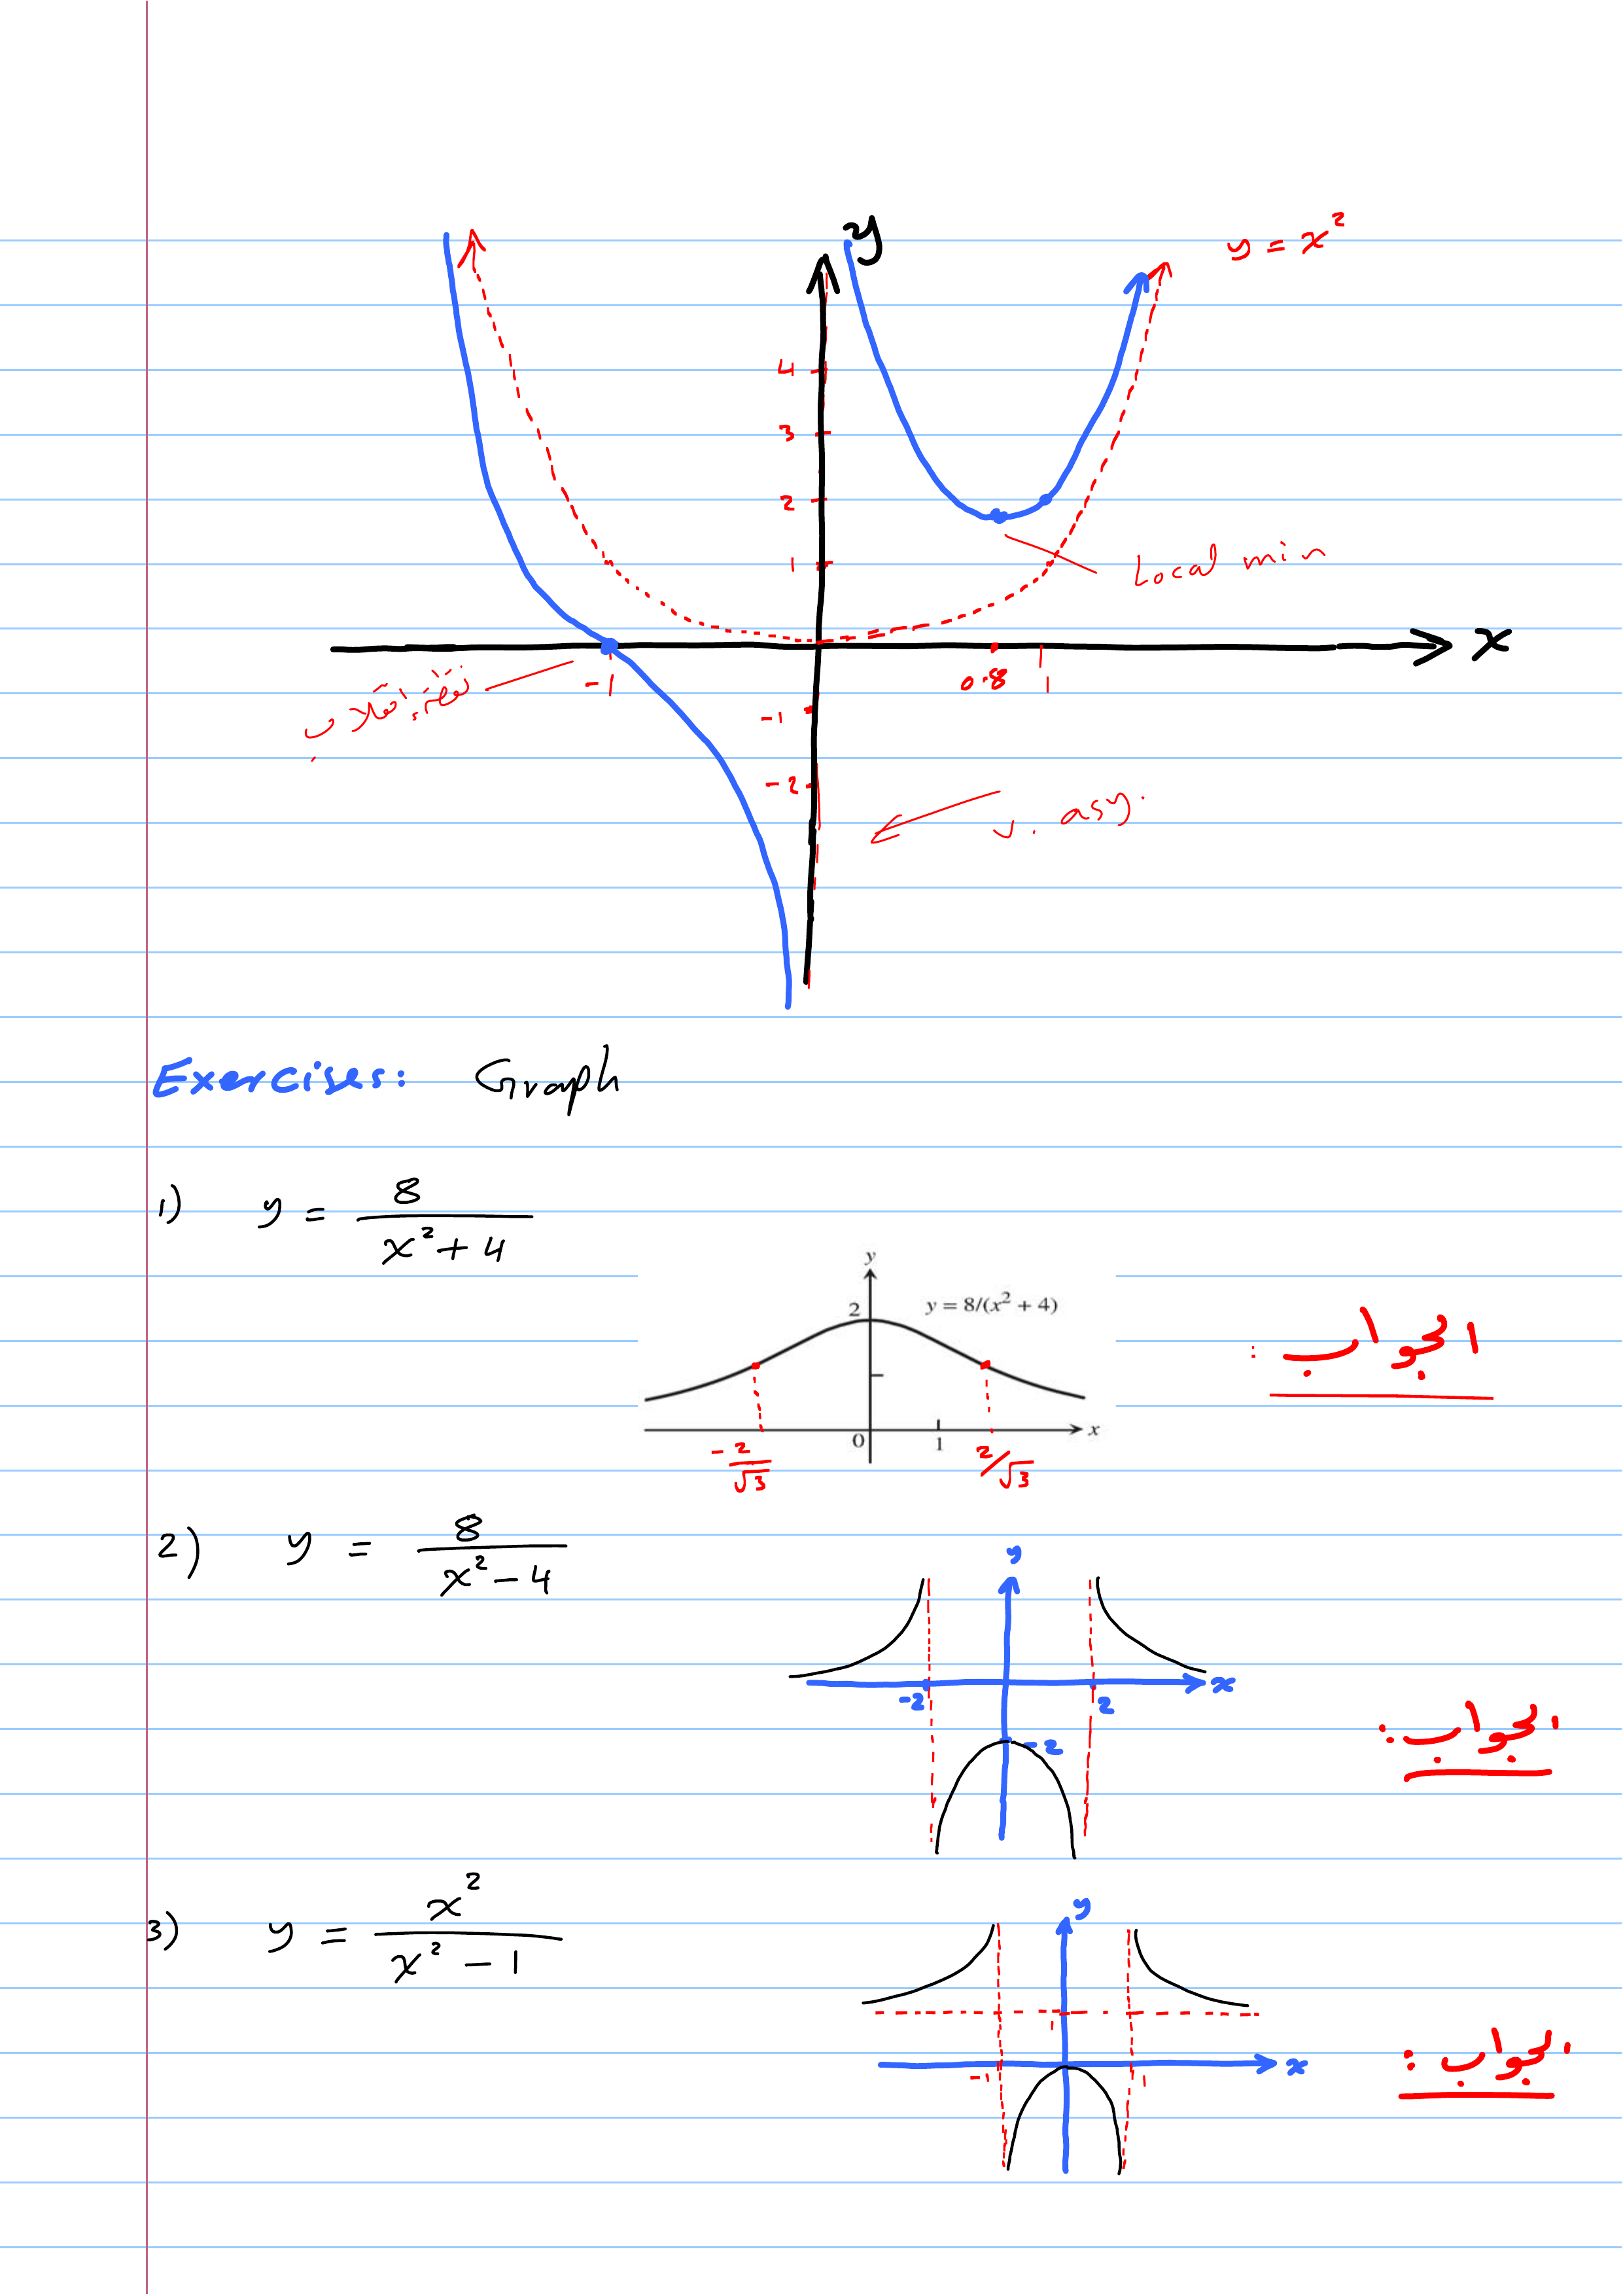 y
y = x²
4
3
2
1
Local min
x
-1
0.8
1
نقطة انقلاب
-1
-2
v. asy.
Exercises: Graph
1) y = 8/(x² + 4)
y
2
y = 8/(x² + 4)
الجواب :
0
1
x
-2/√3
2/√3
2) y = 8/(x² - 4)
y
-2
2
x
-2
الجواب :
3) y = x²/(x² - 1)
y
1
-1
1
x
الجواب :